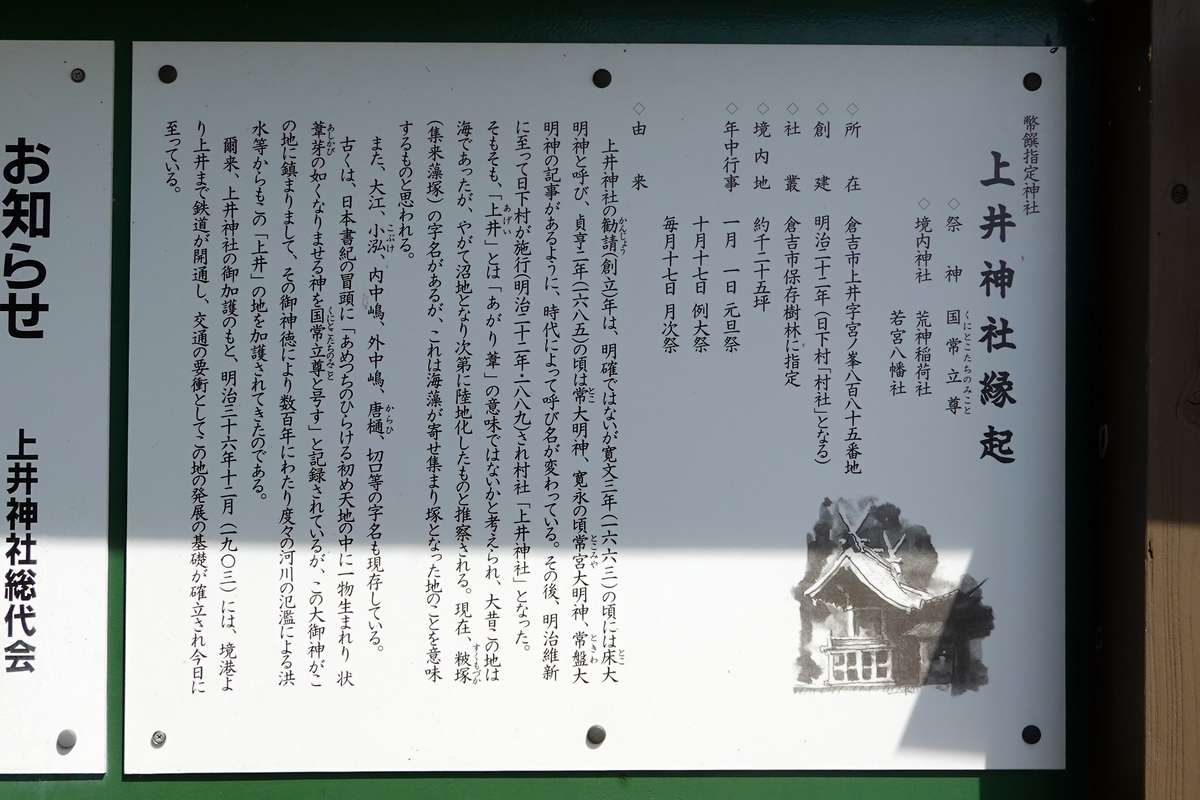 幣饌指定神社
上井神社縁起
◇祭神 国常立尊
くにとこたちのみこと
◇境内神社 荒神稲荷社
若宮八幡社
◇所在 倉吉市上井字宮ノ峯八百八十五番地
◇創建 明治二十二年（日下村「村社」となる）
◇社叢 倉吉市保存樹林に指定
◇境内地 約千二十五坪
◇年中行事 一月 一日 元旦祭
十月十七日 例大祭
毎月十七日 月次祭
◇由来
上井神社の勧請（創立）年は、明確ではないが寛文三年（一六六三）の頃には床大
かんじょう
とこ
明神と呼び、貞享二年（一六八五）の頃は常大明神、寛永の頃常宮大明神、常盤大
とこ
とこみや
ときわ
明神の記事があるように、時代によって呼び名が変わっている。その後、明治維新
に至って日下村が施行明治二十二年・一八八九）され村社「上井神社」となった。
そもそも、「上井」とは「あがり葦」の意味ではないかと考えられ、大昔この地は
あげい
海であったが、やがて沼地となり次第に陸地化したものと推察される。現在、籹塚
すくもづか
（集来藻塚）の字名があるが、これは海藻が寄せ集まり塚となった地のことを意味
するものと思われる。
また、大江、小泓、内中嶋、外中嶋、唐樋、切口等の字名も現存している。
こぶけ
からひ
古くは、日本書紀の冒頭に「あめつちのひらける初め天地の中に一物生まれり 状
葦芽の如くなりませる神を国常立尊と号す」と記録されているが、この大御神がこ
あしかび
くにとこたちのみこと
の地に鎮まりまして、その御神徳により数百年にわたり度々の河川の氾濫による洪
水等からもこの「上井」の地を加護されてきたのである。
爾来、上井神社の御加護のもと、明治三十六年十二月（一九〇三）には、境港よ
り上井まで鉄道が開通し、交通の要衝としてこの地の発展の基礎が確立され今日に
至っている。
お知らせ
上井神社総代会